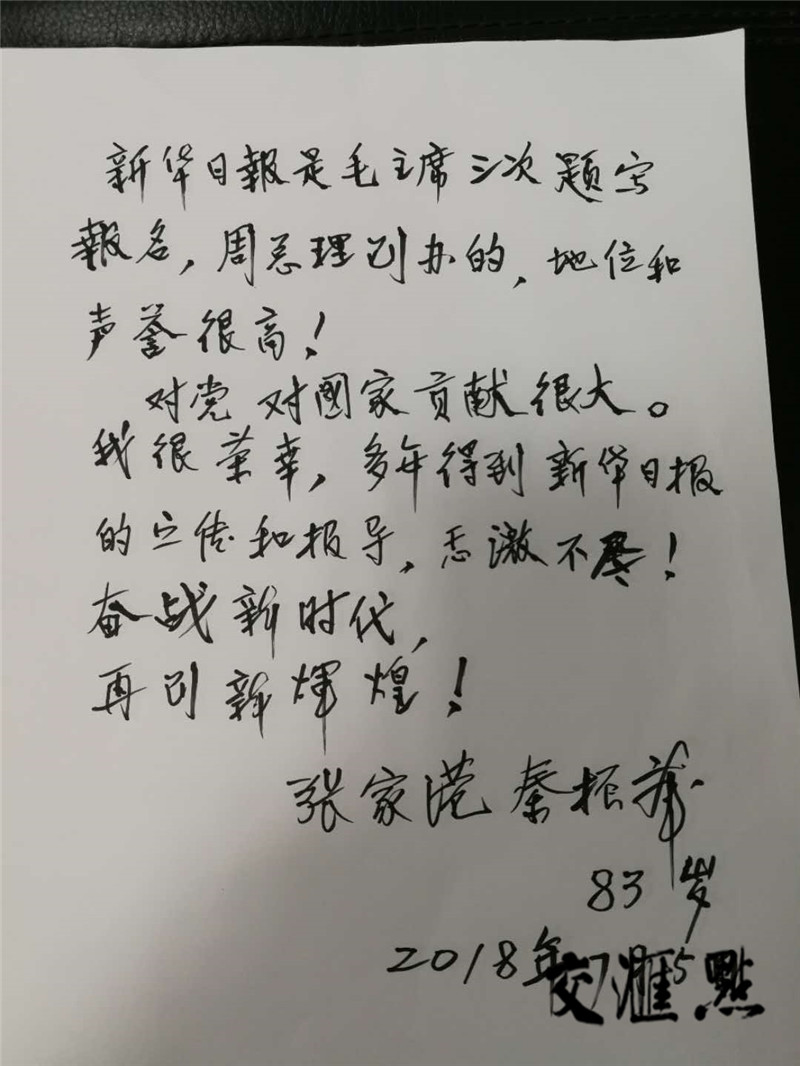 新华日報是毛主席三次题写
報名，周总理创办的，地位和
声誉很高！
对党对國家贡献很大。
我很荣幸，多年得到新华日报
的宣传和报导，感激不尽！
奋战新时代，
再创新輝煌！
张家港 秦振
83岁
2018年 5
交汇點